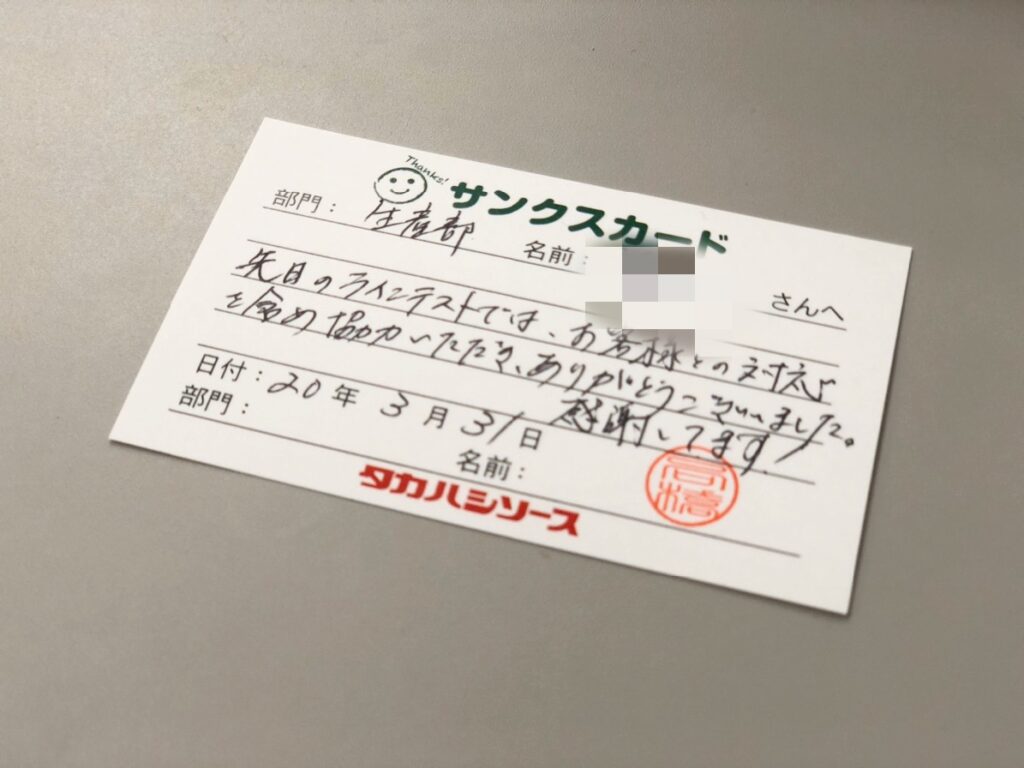 Thanks!
サンクスカード
部門: 生産部 名前: さんへ
先日のラインテストでは、お客様との対応
を含め協力いただき、ありがとうございました。
感謝してます。
日付: 20年 3月 31日
部門: 名前: 高橋
タカハシソース